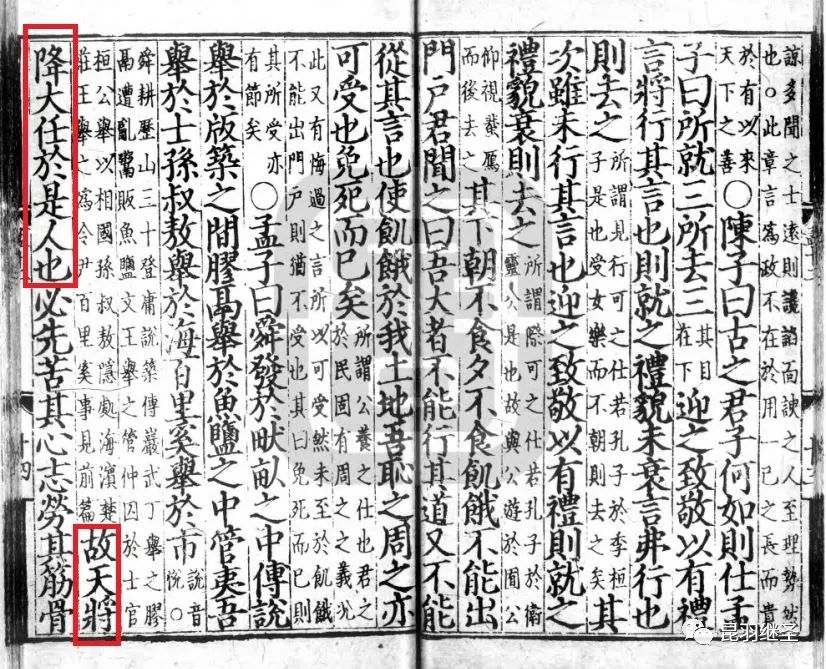 諒多聞之士遠則讒諂面諛之人至理勢然
也○此章言為政不在於用一己之長而貴
於有以來
天下之善
○陳子曰古之君子何如則仕孟
子曰所就三所去三
其目
在下
迎之致敬以有禮
言將行其言也則就之禮貌未衰言弗行也
則去之
所謂見行可之仕若孔子於季桓
子是也受女樂而不朝則去之矣
其
次雖未行其言也迎之致敬以有禮則就之
禮貌衰則去之
所謂際可之仕若孔子於衛
靈公是也故與公遊於囿公
仰視蜚鴈
而後去之
其下朝不食夕不食飢餓不能出
門戶君聞之曰吾大者不能行其道又不能
從其言也使飢餓於我土地吾恥之周之亦
可受也免死而已矣
所謂公養之仕也君之
於民固有周之之義況
此又有悔過之言所以可受然未至於飢餓
不能出門戶則猶不受也其曰免死而已則
其所受亦
有節矣
○孟子曰舜發於畎畝之中傅說
舉於版築之間膠鬲舉於魚鹽之中管夷吾
舉於士孫叔敖舉於海百里奚舉於市
說音
悅○
舜耕歷山三十登庸說築傅巖武丁舉之膠
鬲遭亂鬻販魚鹽文王舉之管仲囚於士官
桓公舉以相國孫叔敖隱處海濱楚
莊王舉之為令尹百里奚事見前篇
故天將
降大任於是人也必先苦其心志勞其筋骨
昆羽继圣